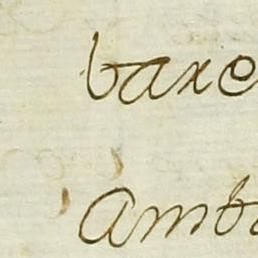 baxe
Amb